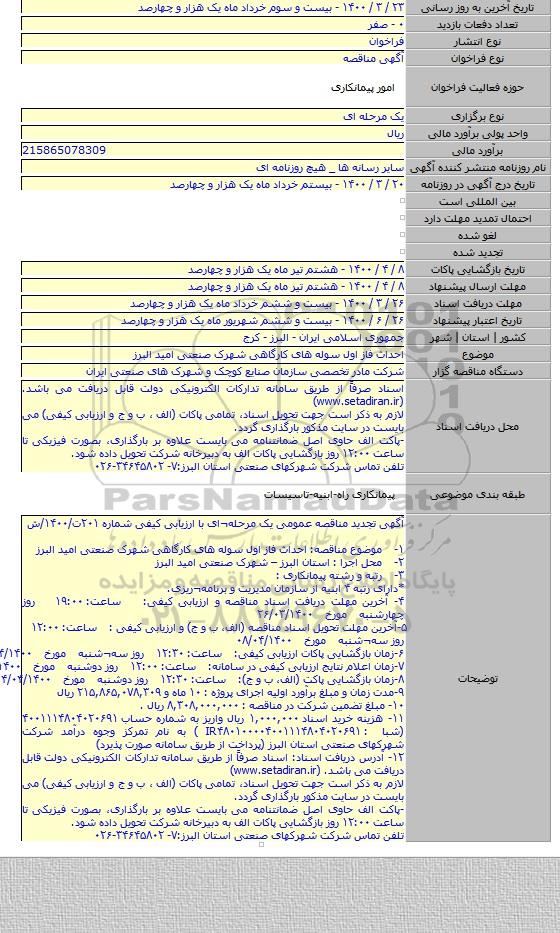 تاریخ آخرین به روز رسانی ۲۳ / ۳ / ۱۴۰۰ - بیست و سوم خرداد ماه یک هزار و چهارصد
تعداد دفعات بازدید ۰ - صفر
نوع انتشار فراخوان
نوع فراخوان آگهی مناقصه
حوزه فعالیت فراخوان امور پیمانکاری
نوع برگزاری یک مرحله ای
واحد پولی برآورد مالی ریال
برآورد مالی 215865078309
نام روزنامه منتشر کننده آگهی سایر رسانه ها _ هیچ روزنامه ای
تاریخ درج آگهی در روزنامه ۲۰ / ۳ / ۱۴۰۰ - بیستم خرداد ماه یک هزار و چهارصد
بین المللی است
احتمال تمدید مهلت دارد
لغو شده
تجدید شده
تاریخ بازگشایی پاکات ۸ / ۴ / ۱۴۰۰ - هشتم تیر ماه یک هزار و چهارصد
مهلت ارسال پیشنهاد ۸ / ۴ / ۱۴۰۰ - هشتم تیر ماه یک هزار و چهارصد
مهلت دریافت اسناد ۲۶ / ۳ / ۱۴۰۰ - بیست و ششم خرداد ماه یک هزار و چهارصد
تاریخ اعتبار پیشنهاد ۲۶ / ۶ / ۱۴۰۰ - بیست و ششم شهریور ماه یک هزار و چهارصد
کشور | استان | شهر جمهوری اسلامی ایران - البرز - کرج
موضوع احداث فاز اول سوله های کارگاهی شهرک صنعتی امید البرز
دستگاه مناقصه گزار شرکت مادر تخصصی سازمان صنایع کوچک و شهرک های صنعتی ایران
محل دریافت اسناد
اسناد صرفاً از طریق سامانه تدارکات الکترونیکی دولت قابل دریافت می باشد.
(www.setadiran.ir)
لازم به ذکر است جهت تحویل اسناد، تمامی پاکات (الف ، ب و ج و ارزیابی کیفی) می
بایست در سایت مذکور بارگذاری گردد.
-پاکت الف حاوی اصل ضمانتنامه می بایست علاوه بر بارگذاری، بصورت فیزیکی تا
ساعت ۱۲:۰۰ روز بازگشایی پاکات الف به دبیرخانه شرکت تحویل داده شود.
تلفن تماس شرکت شهرکهای صنعتی استان البرز:۷- ۳۴۶۴۵۸۰۲-۰۲۶
طبقه بندی موضوعی پیمانکاری راه-ابنیه-تاسیسات
ParsNamadData
توضیحات
آگهی تجدید مناقصه عمومی یک مرحله¬ای با ارزیابی کیفی شماره ۲۰۱ت/۱۴۰۰/ش
۱- موضوع مناقصه: احداث فاز اول سوله های کارگاهی شهرک صنعتی امید البرز
۲- محل اجرا : استان البرز – شهرک صنعتی امید البرز
۳- رتبه و رشته پیمانکاری :
*دارای رتبه ۴ ابنیه از سازمان مدیریت و برنامه¬ریزی.
۴- آخرین مهلت دریافت اسناد مناقصه و ارزیابی کیفی: ساعت: ۱۹:۰۰ روز
چهارشنبه مورخ ۲۶/۰۳/۱۴۰۰
۵-آخرین مهلت تحویل اسناد مناقصه (الف، ب و ج) و ارزیابی کیفی : ساعت: ۱۲:۰۰
روز سه¬شنبه مورخ ۰۸/۰۴/۱۴۰۰
۶-زمان بازگشایی پاکات ارزیابی کیفی: ساعت: ۱۲:۳۰ روز سه¬شنبه مورخ
۷-زمان اعلام نتایج ارزیابی کیفی در سامانه: ساعت: ۱۲:۰۰ روز دوشنبه مورخ
۸-زمان بازگشایی پاکت (الف، ب و ج): ساعت: ۱۲:۳۰ روز دوشنبه مورخ
۹-مدت زمان و مبلغ برآورد اولیه اجرای پروژه : ۱۰ ماه و ۲۱۵,۸۶۵,۰۷۸,۳۰۹ ریال
۱۰- مبلغ تضمین شرکت در مناقصه : ۸,۳۰۸,۰۰۰,۰۰۰ ریال .
۱۱- هزینه خرید اسناد ۱,۰۰۰,۰۰۰ ریال واریز به شماره حساب ۴۰۰۱۱۱۴۸۰۴۰۲۰۶۹۱
(شبا : ) به نام تمرکز وجوه درآمد شرکت
شهرکهای صنعتی استان البرز (پرداخت از طریق سامانه صورت پذیرد)
۱۲- آدرس دریافت اسناد: اسناد صرفاً از طریق سامانه تدارکات الکترونیکی دولت قابل
دریافت می باشد. (www.setadiran.ir)
لازم به ذکر است جهت تحویل اسناد، تمامی پاکات (الف ، ب و ج و ارزیابی کیفی) می
بایست در سایت مذکور بارگذاری گردد.
-پاکت الف حاوی اصل ضمانتنامه می بایست علاوه بر بارگذاری، بصورت فیزیکی تا
ساعت ۱۲:۰۰ روز بازگشایی پاکات الف به دبیرخانه شرکت تحویل داده شود.
تلفن تماس شرکت شهرکهای صنعتی استان البرز:۷- ۳۴۶۴۵۸۰۲-۰۲۶